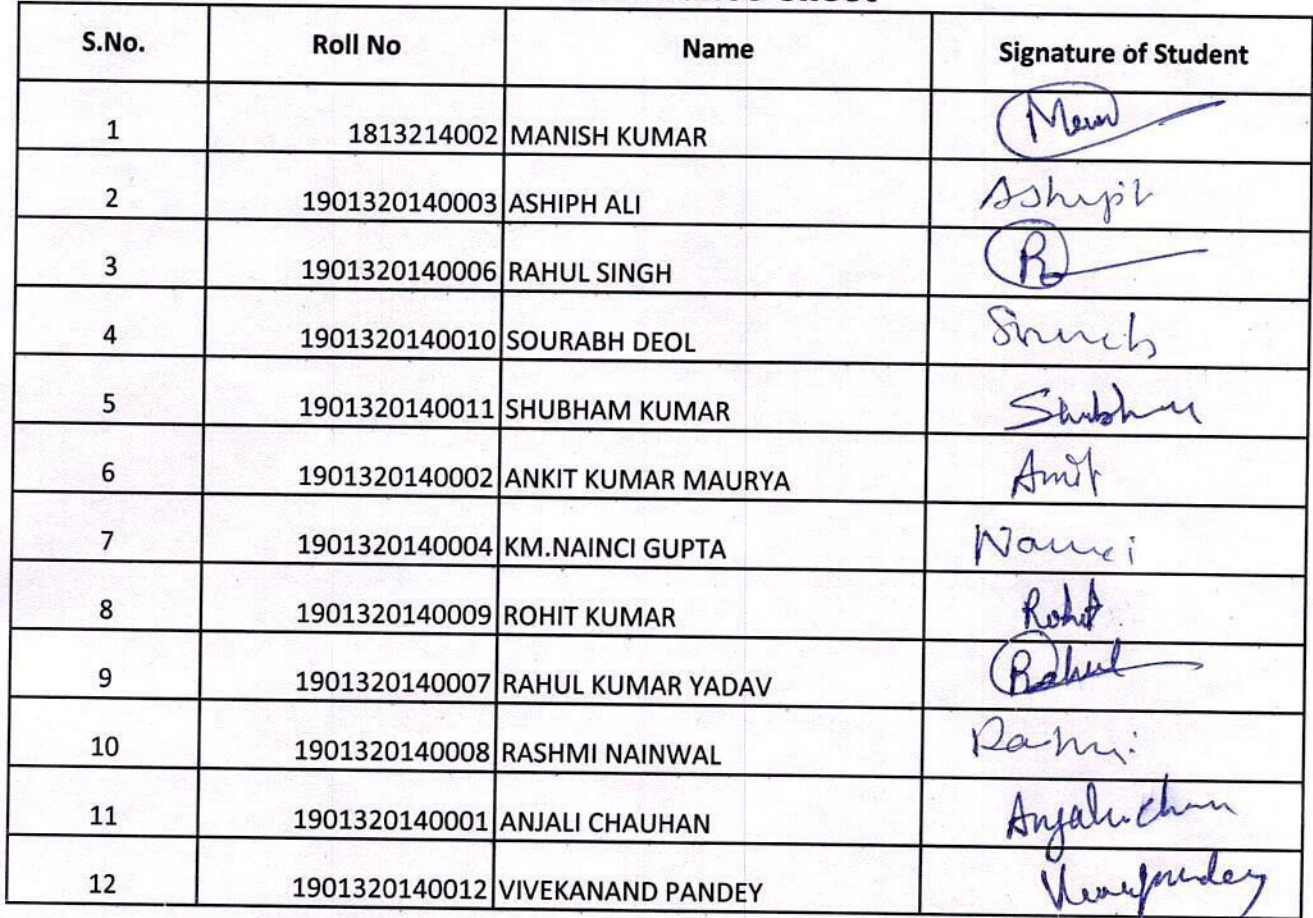 S.No. Roll No Name Signature of Student
1 1813214002 MANISH KUMAR
2 1901320140003 ASHIPH ALI
3 1901320140006 RAHUL SINGH R
4 1901320140010 SOURABH DEOL
5 1901320140011 SHUBHAM KUMAR
6 1901320140002 ANKIT KUMAR MAURYA
7 1901320140004 KM.NAINCI GUPTA
8 1901320140009 ROHIT KUMAR Rohit
9 1901320140007 RAHUL KUMAR YADAV Rahul
10 1901320140008 RASHMI NAINWAL
11 1901320140001 ANJALI CHAUHAN
12 1901320140012 VIVEKANAND PANDEY